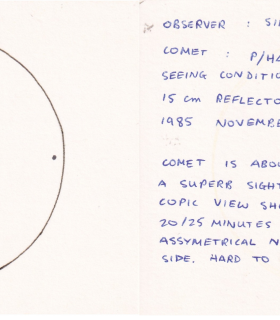 OBSERVER : SI
COMET : P/HA
SEEING CONDITIO
15 cm REFLECTO
1985 NOVEMBE
COMET IS ABOU
A SUPERB SIGHT
COPIC VIEW SH
20/25 MINUTES
ASSYMETRICAL N
SIDE. HARD TO